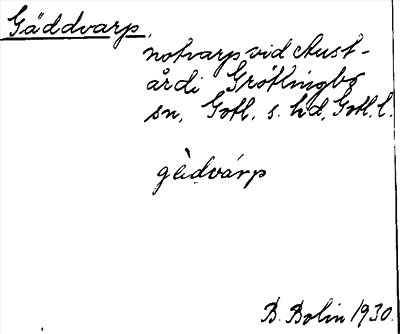 Gäddvarp,
notvarp vid Aust-
årdi Grötlingbo
sn, Gotl. s. hd, Gotl. l.
gèdvárp
B. Bolin 1930.